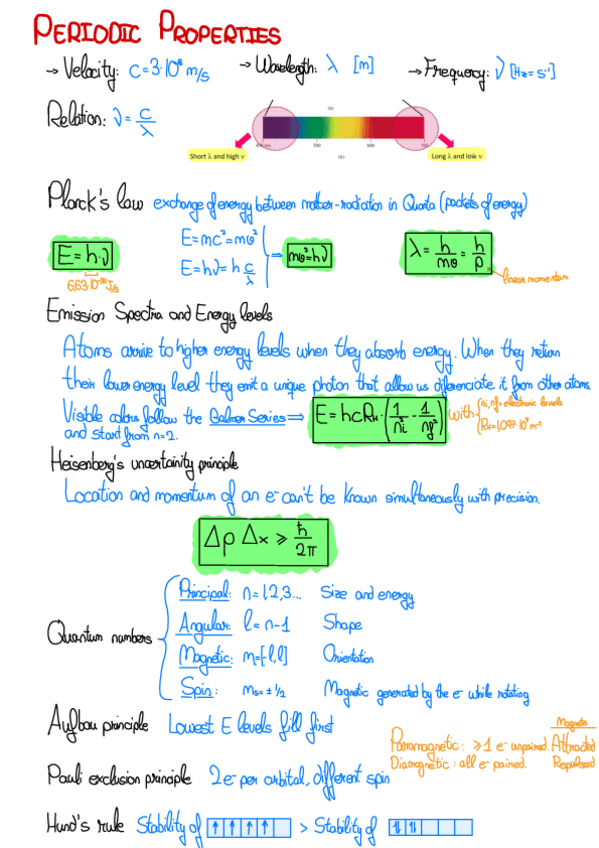 PERIODIC PROPERTIES
→ Velocity: C=3·10⁸ m/s → Wavelength: λ [m] → Frequency: ν [Hz=s⁻¹]
Relation: ν = c/λ
(a)
500 600
(b)
Short λ and high ν
Long λ and low ν
Planck's law exchange of energy between matter-radiation in Quanta (packets of energy)
E=h·ν
6,63·10⁻³⁴ J/s
E=mc²=mθ²
E=hν=h c/λ
⇒ mθ²=hν
λ = h/mθ = h/p
linear momentum
Emission Spectra and Energy levels
Atoms arrive to higher energy levels when they absorb energy. When they return
their lower energy level they emit a unique photon that allow us diferenciate it from other atoms.
Visible colors follow the Balmer Series ⇒ E=hcRH·(1/ni - 1/nf²) with { ni, nf= electronic levels
and start from n=2. RH=1,097·10⁷ m⁻¹
Heisenberg's uncertainity principle
Location and momentum of an e⁻ can't be known simultaneously with precision.
Δp Δx ≥ ħ/2π
Quantum numbers
Principal: n=1,2,3... Size and energy
Angular: l=n-1 Shape
Magnetic: m=[-l,l] Orientation
Spin: ms=±1/2 Magnetic generated by the e⁻ while rotating
Aufbau principle Lowest E levels fill first
Magnets
Paramagnetic: ≥1 e⁻ unpaired. Attracted
Diamagnetic: all e⁻ paired. Repulsed
Pauli exclusion principle 2e⁻ per orbital, different spin
Hund's rule Stability of ↑ ↑ ↑ ↑ > Stability of ↑↓ ↑↓